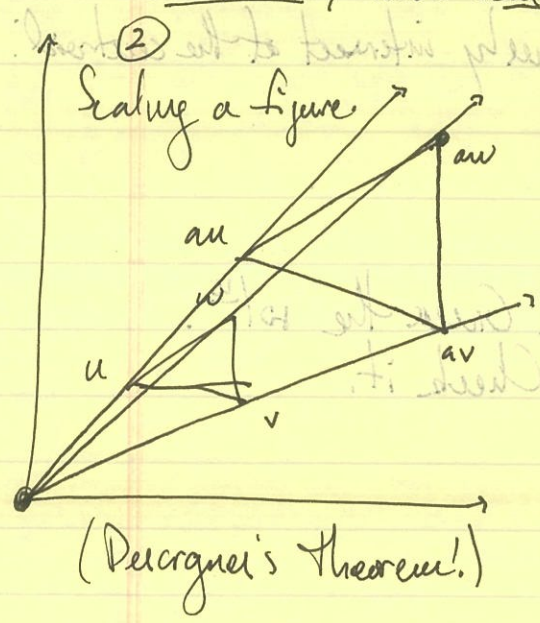 ②
Scaling a figure.
aw
au
w
av
u
v
(Desargues's Theorem!)